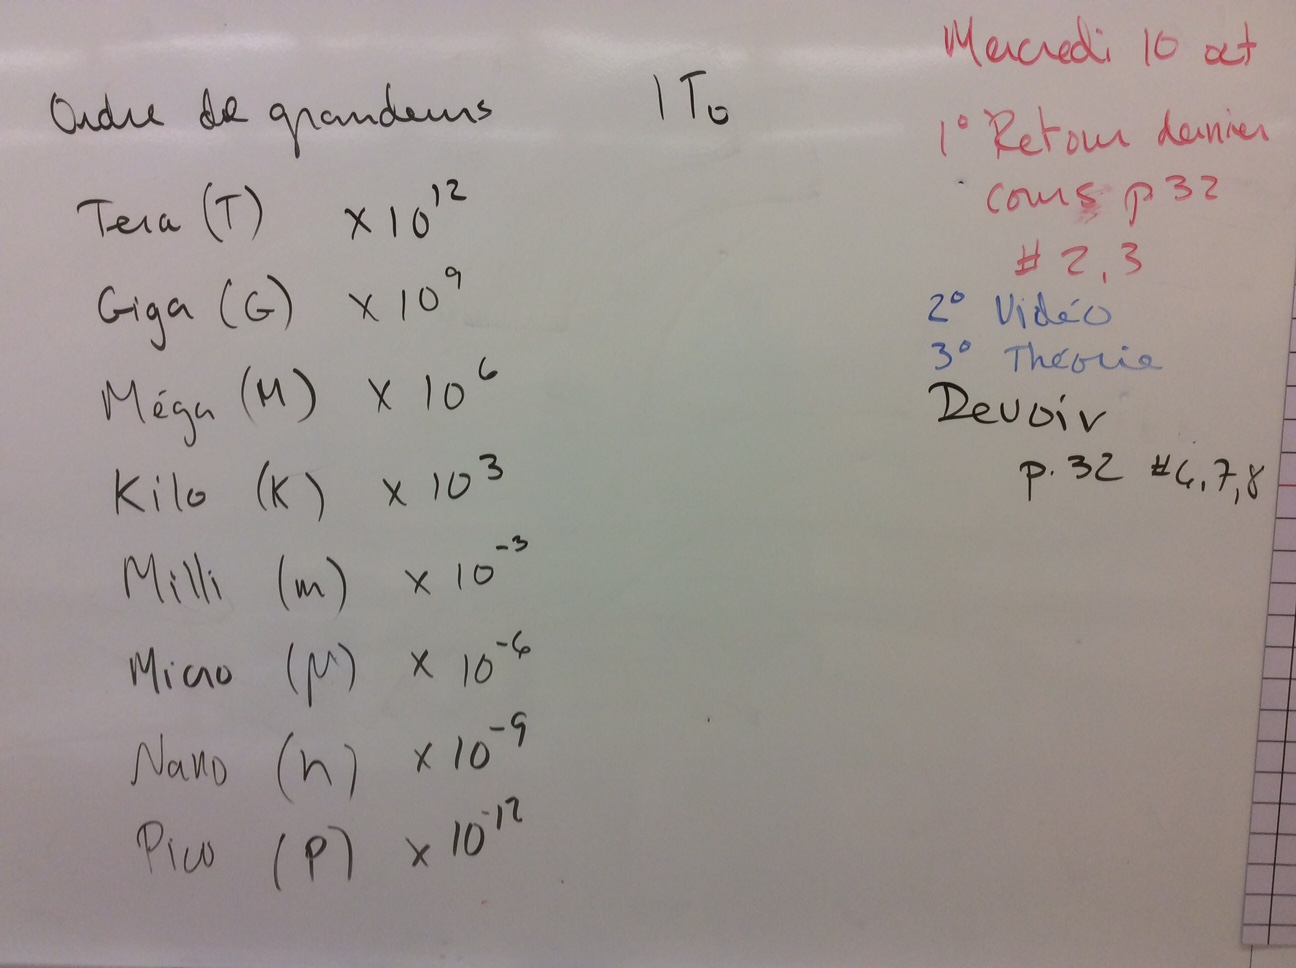 Ordre de grandeurs
1 To
Tera (T) × 10¹²
Giga (G) × 10⁹
Méga (M) × 10⁶
Kilo (K) × 10³
Milli (m) × 10⁻³
Micro (μ) × 10⁻⁶
Nano (n) × 10⁻⁹
Pico (P) × 10⁻¹²
Mercredi 10 oct
1° Retour dernier
cours p 32
# 2, 3
2° Vidéo
3° Théorie
Devoir
p. 32 #6,7,8